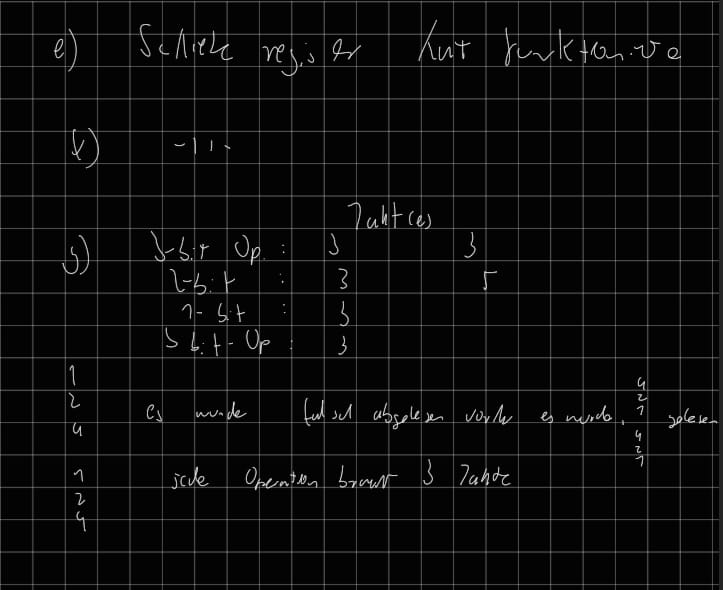 e) Schiebe register hat funktioniert
f) -11-
g) Takt(e)
3-bit Op. : 3 3
2-bit : 3 5
1-bit : 3
3 bit-Op : 3
1
2
4
es wurde falsch abgelesen vorher es wurde. 4 2 1 4 2 1 gelesen
1
2
4
jede Operation braucht 3 Takte